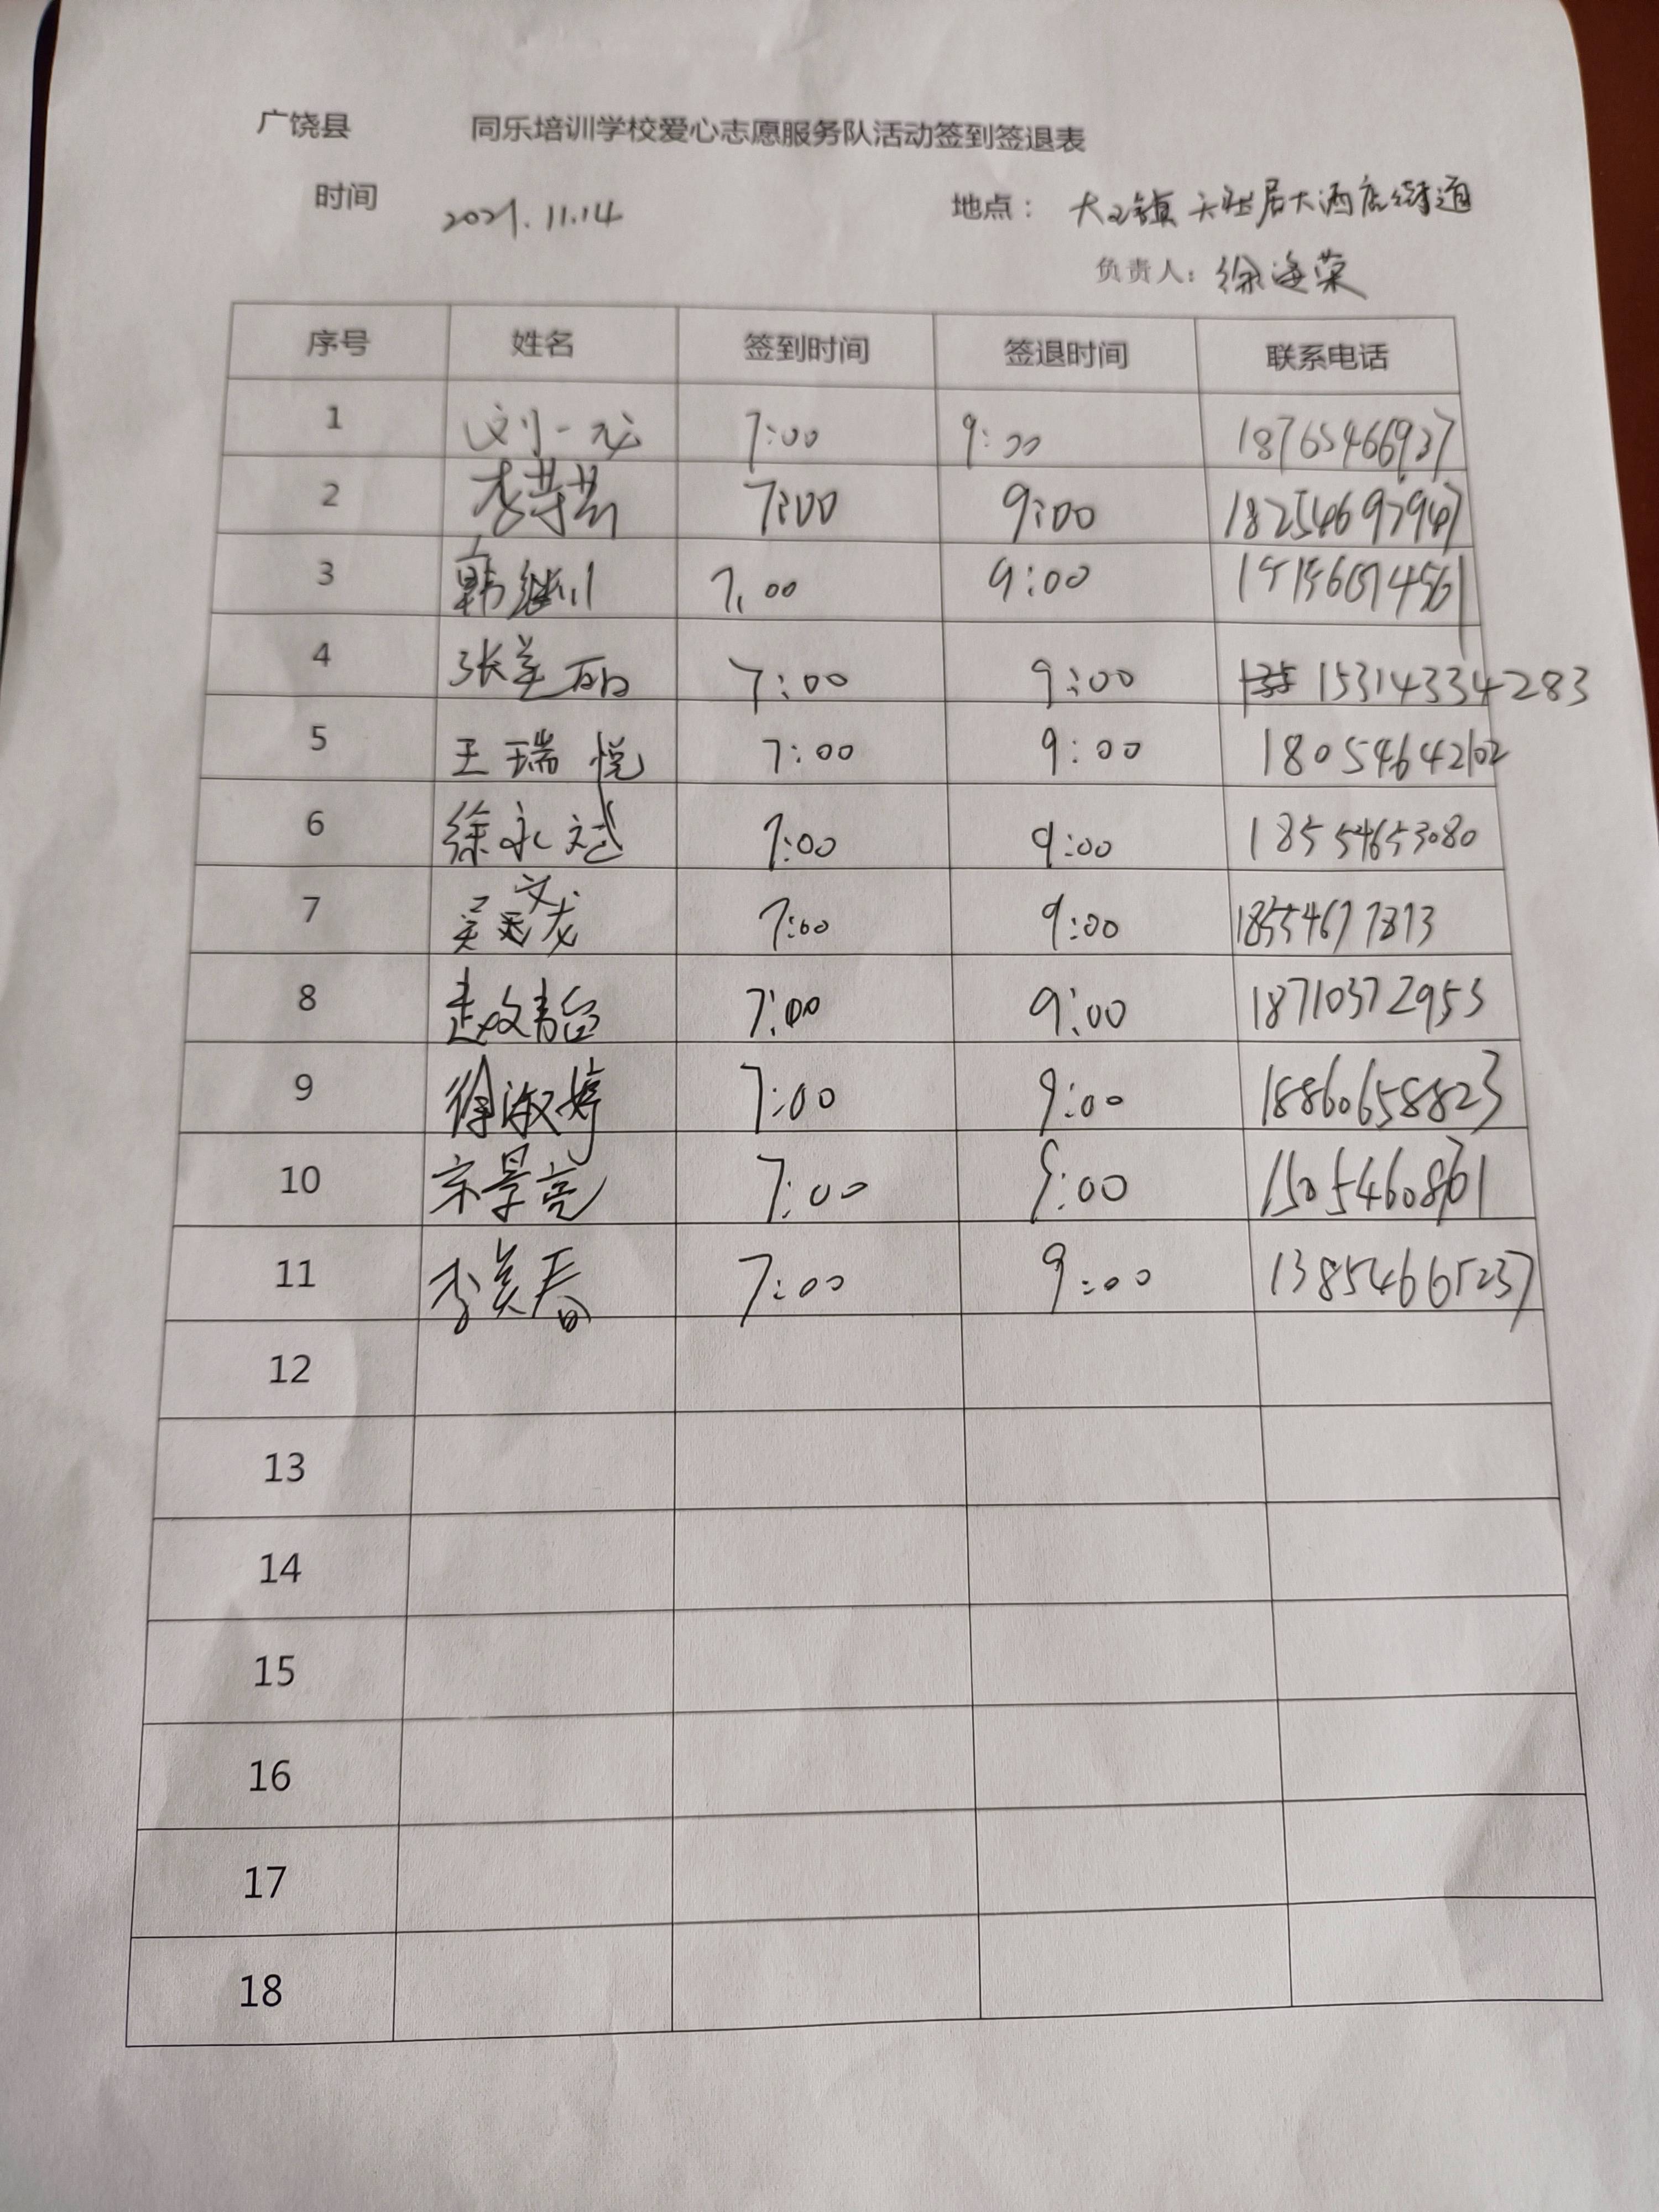 广饶县 同乐培训学校爱心志愿服务队活动签到签退表
时间 2021.11.14 地点： 大王镇 居大酒店街道
负责人：徐海荣
序号 姓名 签到时间 签退时间 联系电话
1 刘一龙 7:00 9:00 18765466937
2 李梦芸 7:00 9:00
3 韩继川 7:00 9:00
4 张美丽 7:00 9:00 15314334283
5 王瑞悦 7:00 9:00 18054642102
6 徐永斌 7:00 9:00 18554653080
7 吴文龙 7:00 9:00 18554677813
8 7:00 9:00 18710372953
9 徐淑婷 7:00 9:00 18860658823
10 宋景亮 7:00 9:00
11 李美春 7:00 9:00 13854665237
12
13
14
15
16
17
18